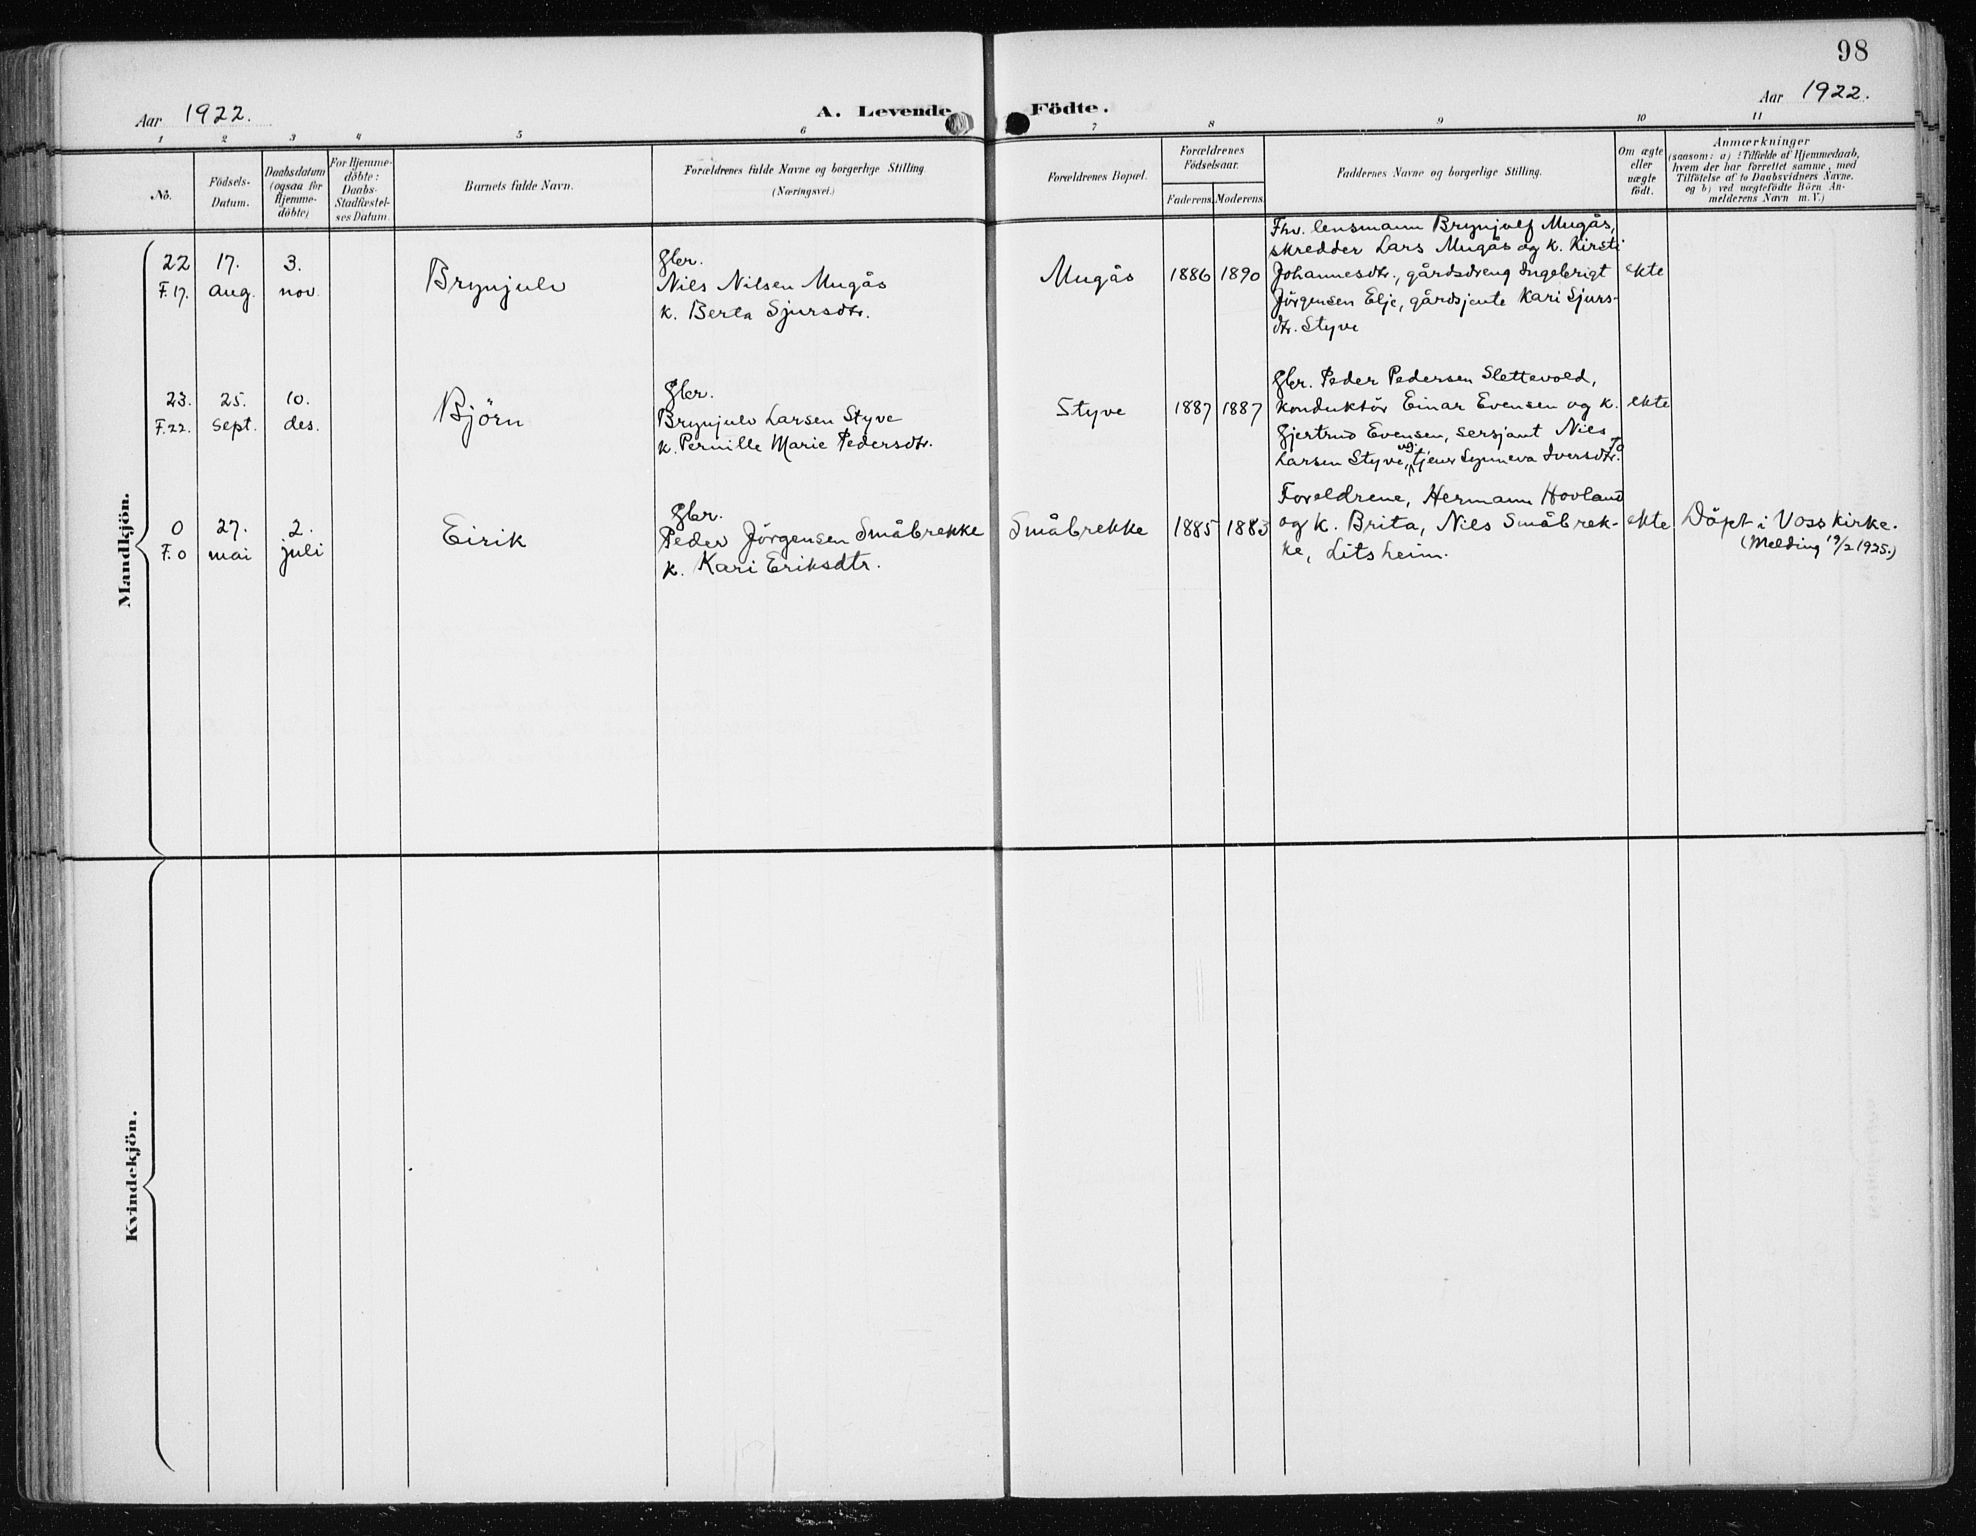 98
Aar 1922.
A. Levende
Födte.
Aar 1922.
1 2 3 4 5 6 7 8 9 10 11
No.
Födsels-
Datum.
Daabsdatum
(ogsaa for
Hjemme-
döbte)
For Hjemme-
döbte:
Daabs-
Stadfæstel-
ses Datum.
Barnets fulde Navn.
Forældrenes fulde Navne og borgerlige Stilling
(Næringsvei.)
Forældrenes Bopæl.
Forældrenes
Födselsaar.
Faderens. Moderens.
Faddernes Navne og borgerlige Stilling.
Om ægte
eller
uægte
födt.
Anmærkninger
(saasom: a) i Tilfælde af Hjemmedaab,
hvem der har forrettet samme, med
Tilföielse af to Daabsvidners Navne.
og b) ved uægtefödte Börn An-
melderens Navn m. V.)
Mandkjön.
22
F. 17.
17.
aug.
3.
nov.
Brynjulv
Gbr.
Nils Nilsen Mugås
k. Berta Sjursdtr.
Mugås
1886 1890
Fhv. lensmann Brynjulf Mugås,
skredder Lars Mugås og k. Kirsti
Johannesdtr., gårdsdreng Ingebrigt
Jörgensen Elje, gårdsjente Kari Sjurs-
dtr. Styve
ekte
23.
F. 22.
25.
sept.
10.
des.
Björn
Gbr.
Brynjulv Larsen Styve
k. Pernille Marie Pedersdtr.
Styve
1887 1887
Gbr. Peder Pedersen Slettevold,
konduktör Einar Evensen og k.
Gjertrud Evensen, sersjant Nils
Larsen Styve, og tjener Synneva Iversdtr.
ekte
0
F. 0
27.
mai
2.
juli
Eirik
Gbr.
Peder Jörgensen Småbrekke
k. Kari Eriksdtr.
Småbrekke
1885 1883
Foreldrene, Hermann Hovland
og k. Brita, Nils Småbrek-
ke, Litsheim.
ekte
Döpt i Voss kirke.
(Melding 19/2 1925.)
Kvindekjön.